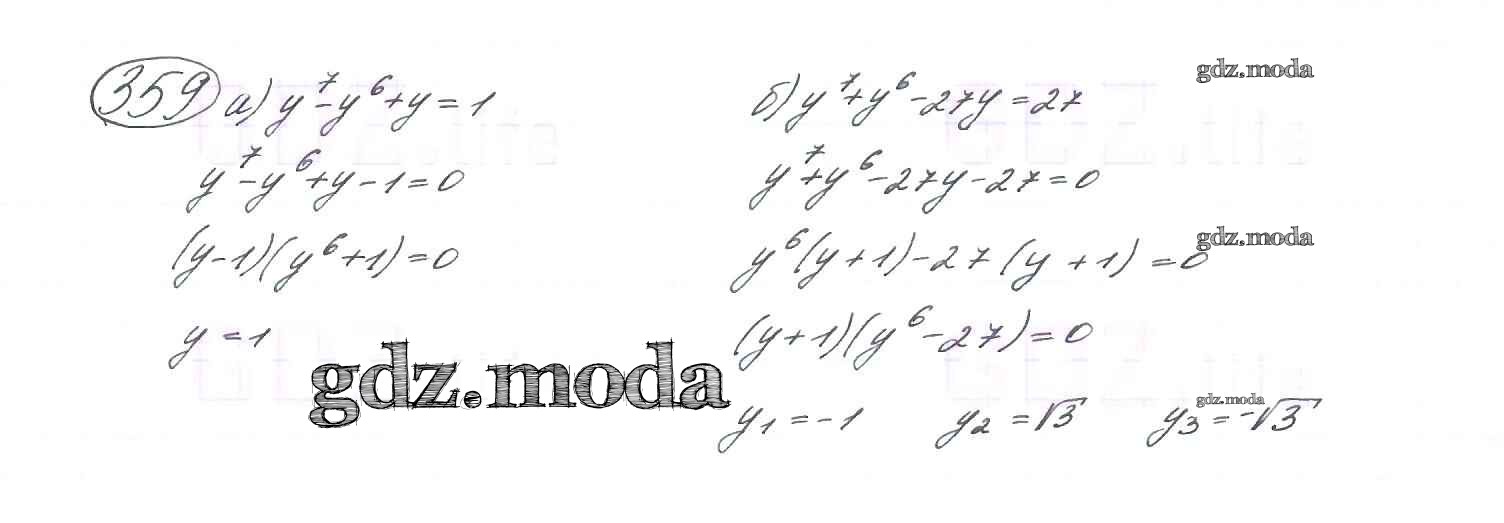 359 а) y⁷-y⁶+y=1
y⁷-y⁶+y-1=0
(y-1)(y⁶+1)=0
y=1
gdz.moda
б) y⁷+y⁶-27y=27
gdz.moda
y⁷+y⁶-27y-27=0
y⁶(y+1)-27(y+1)=0
gdz.moda
(y+1)(y⁶-27)=0
y₁=-1 y₂=√3 y₃=-√3
gdz.moda